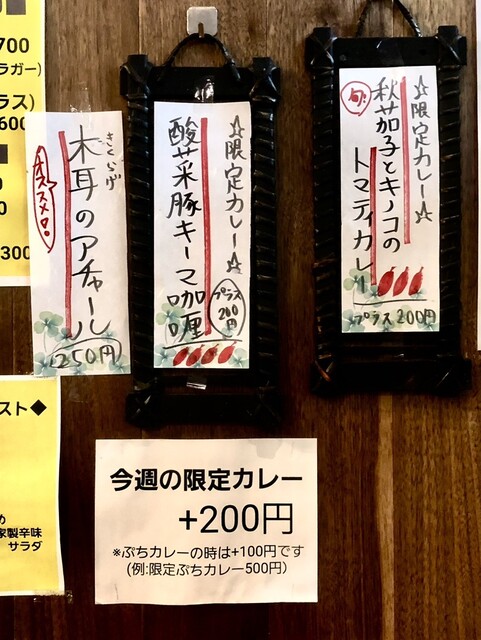 ☆限定カレー☆
旬!
秋茄子とキノコの
トマティカレー
プラス200円
☆限定カレー☆
酸菜豚キーマ咖喱
プラス
200
円
きくらげ
木耳のアチャール
オススメ!
250円
今週の限定カレー
+200円
※ぷちカレーの時は+100円です
(例:限定ぷちカレー500円)
700
ラガー)
ラス)
600
0
300
スト◆
め
家製辛味
サラダ